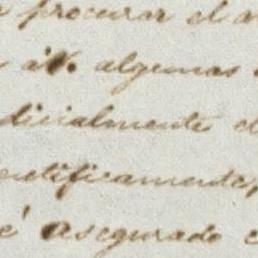 procurar el a
á V. algunas
dicialmente el
ectificamente,
é asegurado e